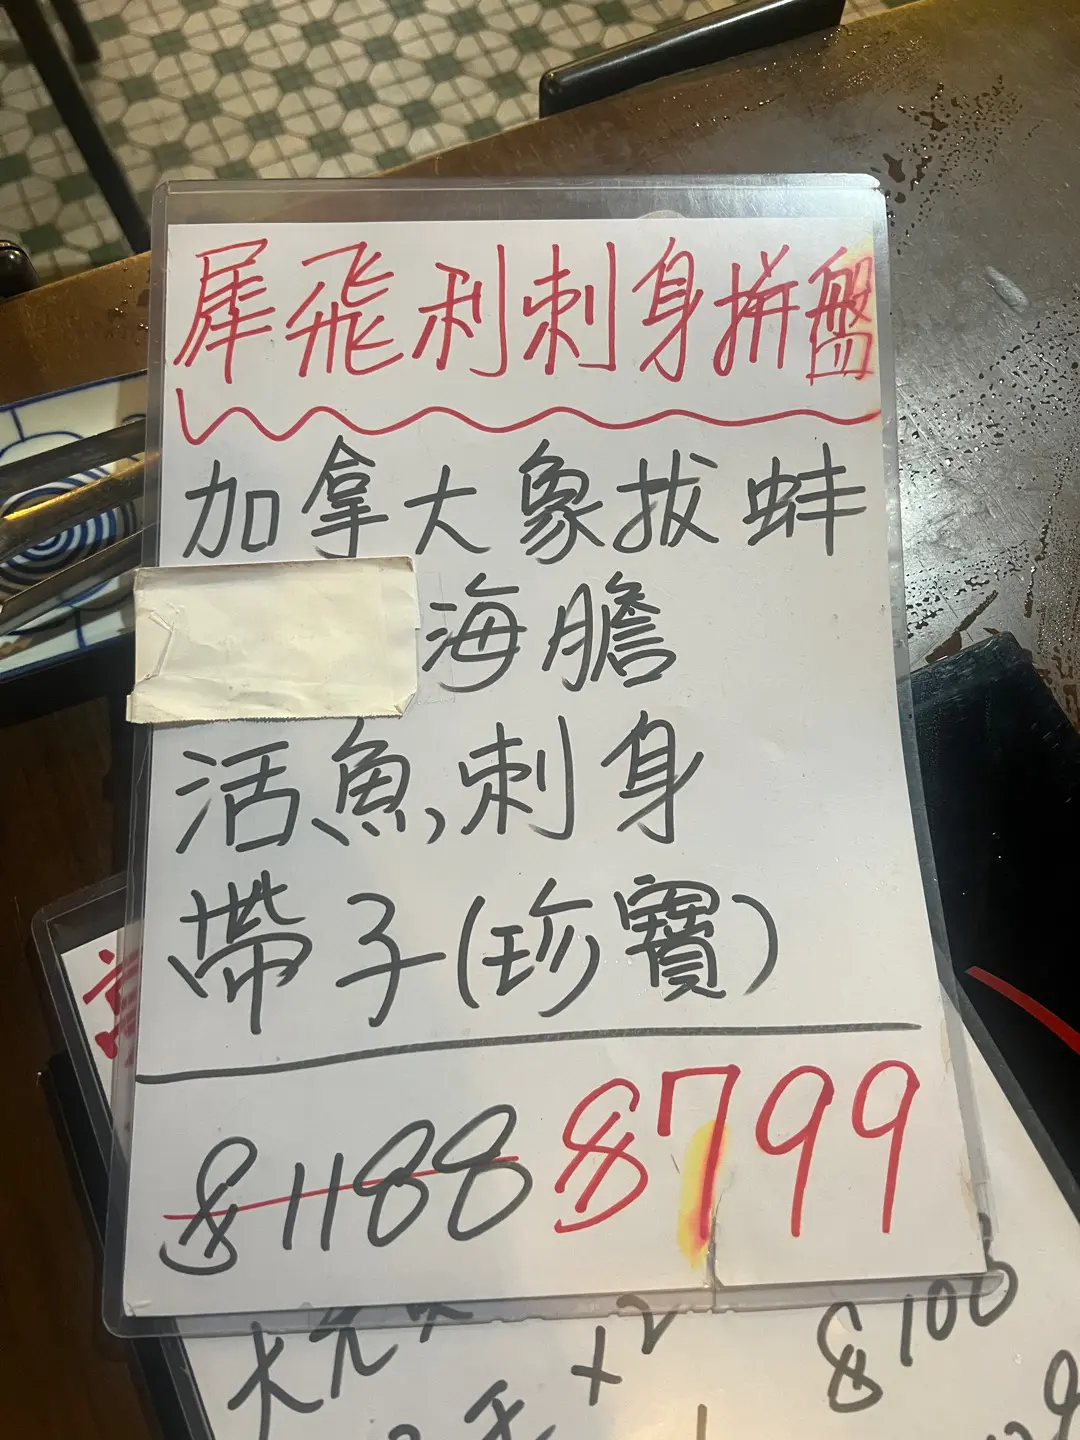 犀飛利刺身拼盤
加拿大象拔蚌
海膽
活魚,刺身
帶子(珍寶)
$1188 $799
x2 $100